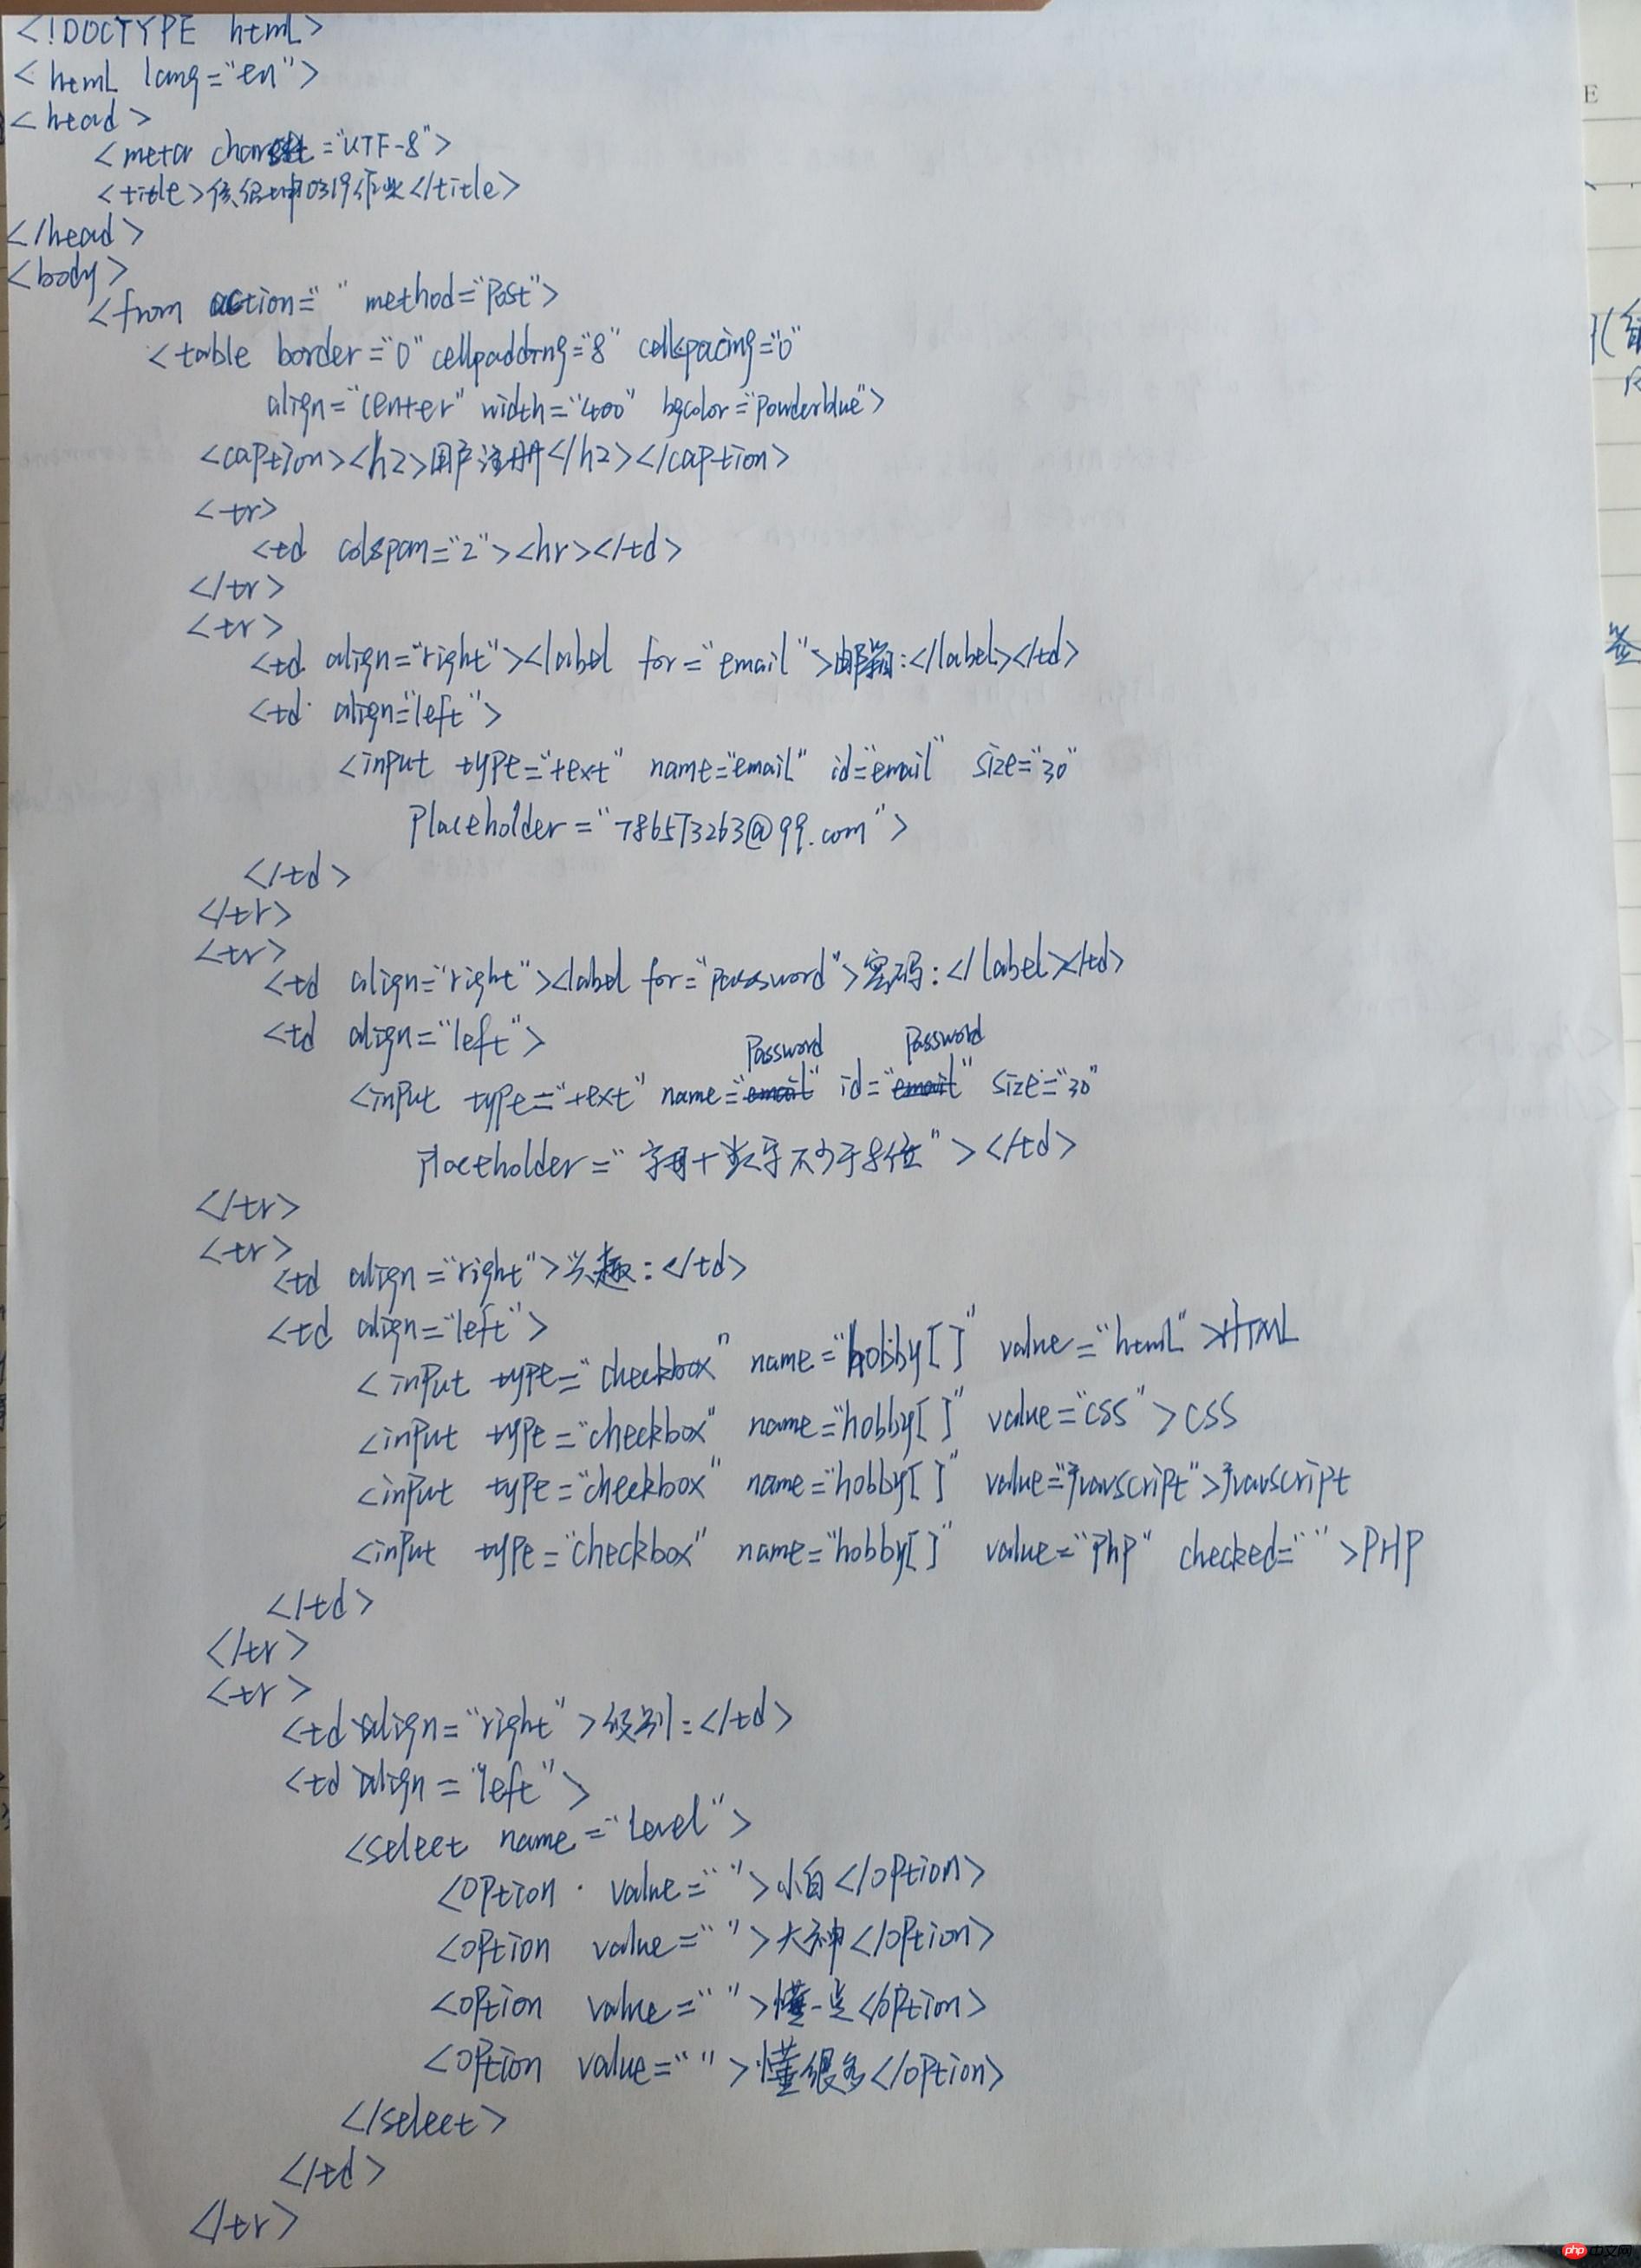 <!DOCTYPE html>
<html lang="en">
<head>
<meta charset="UTF-8">
<title>0319作业</title>
</head>
<body>
<from action="" method="Post">
<table border="0" cellpadding="8" cellspacing="0"
align="center" width="400" bgcolor="Powderblue">
<caption><h2>用户注册</h2></caption>
<tr>
<td colspan="2"><hr></td>
</tr>
<tr>
<td align="right"><label for="email">邮箱:</label></td>
<td align="left">
<input type="text" name="email" id="email" size="30"
Placeholder="786573263@qq.com">
</td>
</tr>
<tr>
<td align="right"><label for="password">密码:</label></td>
<td align="left">
<input type="text" name="Password" id="Password" size="30"
Placeholder="字母+数字不少于8位"></td>
</tr>
<tr>
<td align="right">兴趣:</td>
<td align="left">
<input type="checkbox" name="hobby[]" value="html">HTML
<input type="checkbox" name="hobby[]" value="css">CSS
<input type="checkbox" name="hobby[]" value="Javscript">Javscript
<input type="checkbox" name="hobby[]" value="PhP" checked="">PHP
</td>
</tr>
<tr>
<td align="right">级别:</td>
<td align="left">
<select name="Level">
<option value="">小白</option>
<option value="">大神</option>
<option value="">懂一点</option>
<option value="">懂很多</option>
</select>
</td>
</tr>
E
签
php中文网